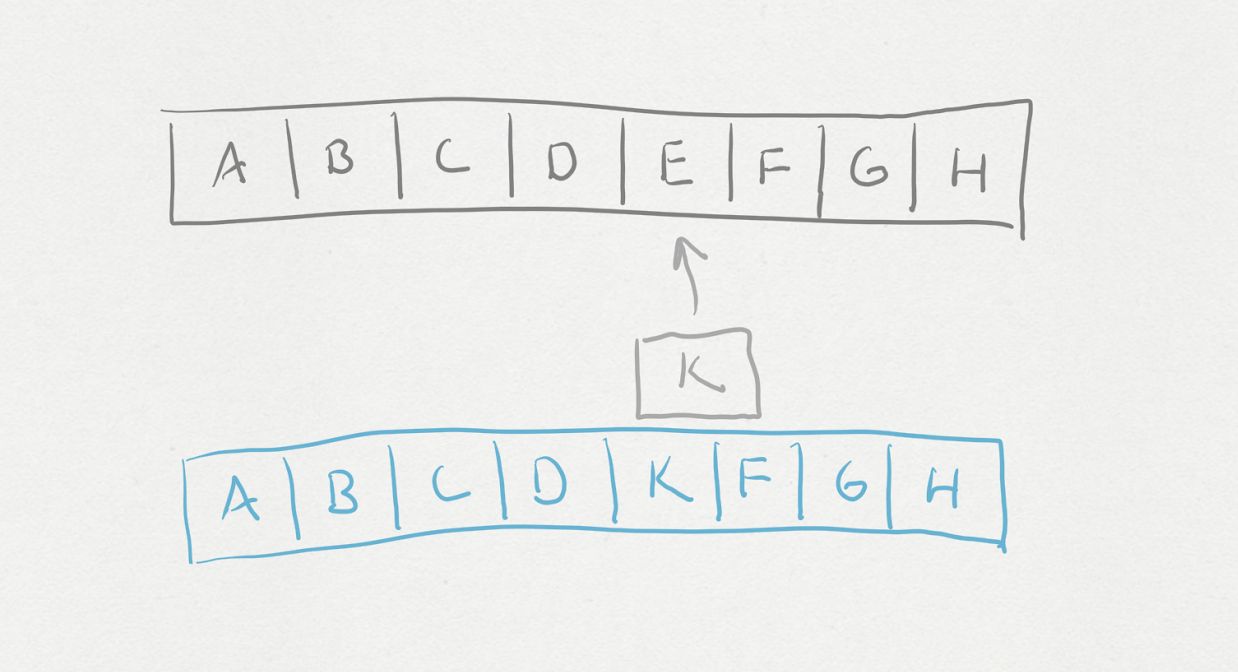 A B C D E F G H
K
A B C D K F G H